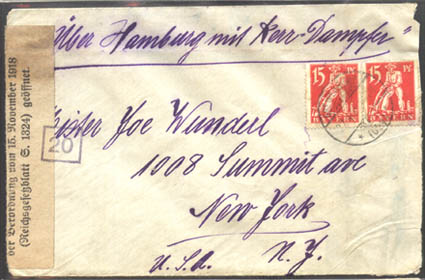 "Über Hamburg mit Kerr-Dampfer"
15 Pf 15 Pf
BAYERN BAYERN
Mister Joe Wunderl
20
1008 Summit ave
New York
U.S.A. N.Y.
der Verordnung vom 15. November 1918
(Reichsgesetzblatt S. 1324) geöffnet.